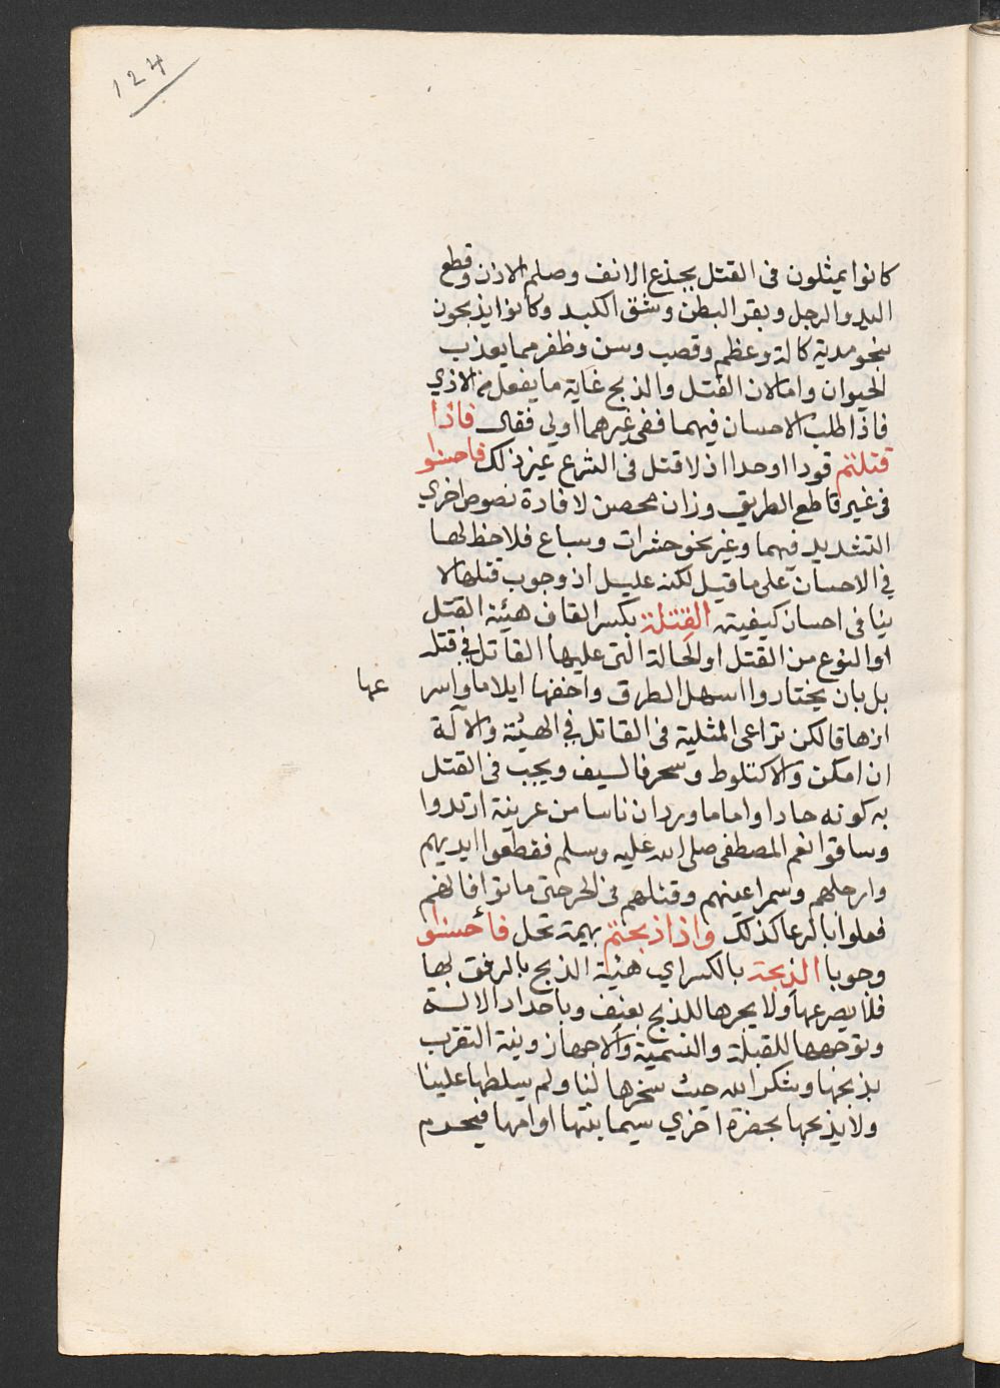 124
كانوا يمثلون فى القتل بجذع الانف وصلم الاذن وقطع
اليد والرجل وبقر البطن وشق الكبد وكانوا يذبحون
بنحو مدية كالة وعظم وقصب وسن وظفر مما يعذب
الحيوان واما لان القتل والذبح غاية ما يفعل من الاذي
فاذا طلب الاحسان فيهما ففى غيرهما اولي فقال فاذا
قتلتم قودا او حدا اذ لا قتل فى الشرع غير ذلك فاحسنوا
فى غير قاطع الطريق وزان محصن لافادة نصوص اخري
التشديد فيهما وغير نحو حشرات وسباع فلا حظ لها
في الاحسان على ما قيل لكنه عليل اذ وجوب قتلها لا
ينافى احسان كيفيته القتلة بكسر القاف هيئة القتل
او النوع من القتل او الحالة التى عليها القاتل في قتله
بل بان يختاروا اسهل الطرق واخفها ايلاما واسر عها
ازهاقا لكن تراعى المثلية فى القاتل في الهيئة والآلة
ان امكن والا كتلوط وسحر فالسيف ويجب فى القتل
به كونه حادا واما ما ورد ان ناسا من عرينة ارتدوا
وساقوا نعم المصطفى صلى الله عليه وسلم فقطعوا ايديهم
وارجلهم وسمر اعينهم وقتلهم فى الحر حتى ماتوا فالنهم
فعلوا بالرعا كذلك واذا ذبحتم بهيمة تحل فأحسنوا
وجوبا الذبحة بالكسر اي هيئة الذبح بالرفق بها
فلا يصرعها ولا يجرها للذبح بعنف وباحداد الالة
وتوجهها للقبلة والتسمية والاجهاز ونية التقرب
بذبحها وشكر الله حيث سخرها لنا ولم يسلطها علينا
ولا يذبحها بحضرة اخري سيما بنتها او امها فيحرم